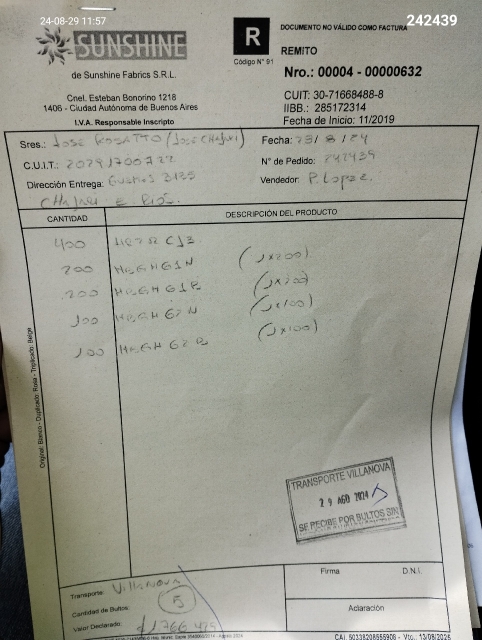 24-08-29 11:57
242439
SUNSHINE
de Sunshine Fabrics S.R.L.
Cnel. Esteban Bonorino 1218
1406 - Ciudad Autónoma de Buenos Aires
I.V.A. Responsable Inscripto
R
Código N° 91
DOCUMENTO NO VÁLIDO COMO FACTURA
REMITO
Nro.: 00004 - 00000632
CUIT: 30-71668488-8
IIBB.: 285172314
Fecha de Inicio: 11/2019
Sres.: Jose Rosatto (Jose Chajari)
Fecha: 29/8/24
C.U.I.T.:
N° de Pedido: 242439
Dirección Entrega: 3135
Vendedor: P. Lopez.
Chajari E. Rios.
CANTIDAD
DESCRIPCIÓN DEL PRODUCTO
400
200 HEGH61N (1x200)
200 HEGH61B (1x200)
100 HEGH62N (1x100)
100 HEGH62B (1x100)
Original: Blanco - Duplicado: Rosa - Triplicado: Beige
TRANSPORTE VILLANOVA
29 AGO 2024
SE RECIBE POR BULTOS SIN
Transporte: Villanova
Cantidad de Bultos: 5
Valor Declarado:
Firma
D.N.I.
Aclaración